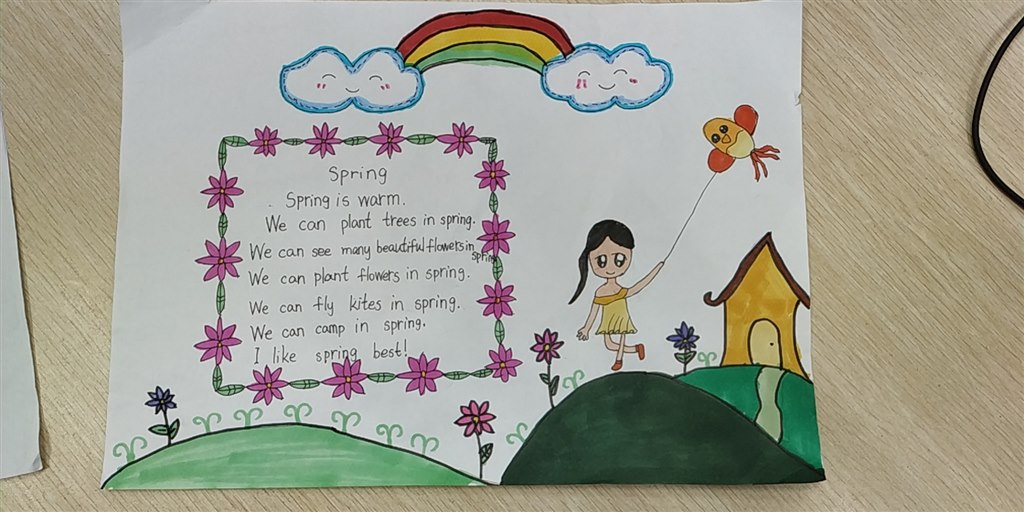 Spring
Spring is warm.
We can plant trees in spring.
We can see many beautiful flowers in spring
We can plant flowers in spring.
We can fly kites in spring.
We can camp in spring.
I like spring best!